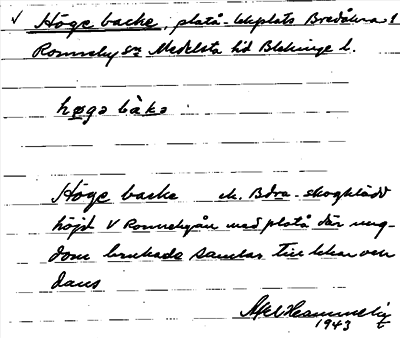 √ Höge backe, platå-lekplats Bredåkra 1
Ronneby sn Medelsta hd Blekinge l.
høgə bàkə
Höge backe ek. Bdra. skogklädd
höjd V Ronnebyån med platå där ung-
dom brukade samlas till lekar och
dans
Axel Hemmelig
1943